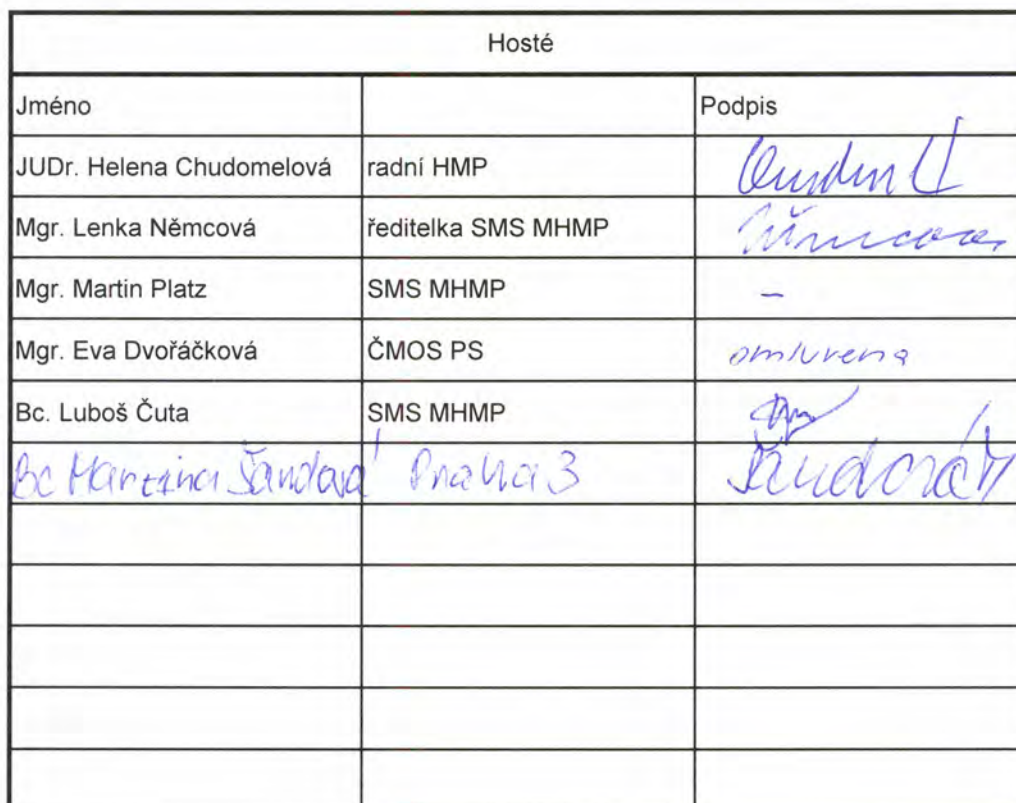 Hosté
Jméno Podpis
JUDr. Helena Chudomelová radní HMP
Mgr. Lenka Němcová ředitelka SMS MHMP Němcová
Mgr. Martin Platz SMS MHMP –
Mgr. Eva Dvořáčková ČMOS PS omluvena
Bc. Luboš Čuta SMS MHMP
Bc Martina Šandová Praha 3